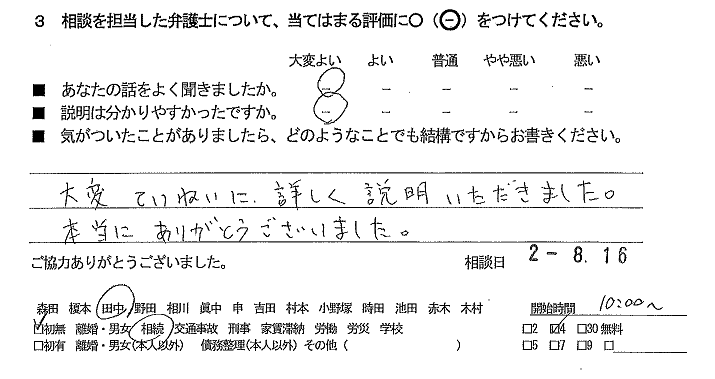 3 相談を担当した弁護士について、当てはまる評価に○(⊖)をつけてください。
大変よい よい 普通 やや悪い 悪い
■ あなたの話をよく聞きましたか。 － － － － －
■ 説明は分かりやすかったですか。 － － － － －
■ 気がついたことがありましたら、どのようなことでも結構ですからお書きください。
大変 ていねいに、詳しく 説明 いただきました。
本当に ありがとうございました。
ご協力ありがとうございました。 相談日 2-8.16
森田 榎本 田中 野田 相川 眞中 申 吉田 村本 小野塚 時田 池田 赤木 木村 開始時間 10:00～
☑初無 離婚・男女 相続 交通事故 刑事 家賃滞納 労働 労災 学校 □2 ☑4 □30 無料
□初有 離婚・男女(本人以外) 債務整理(本人以外) その他 ( ) □5 □7 □9 □